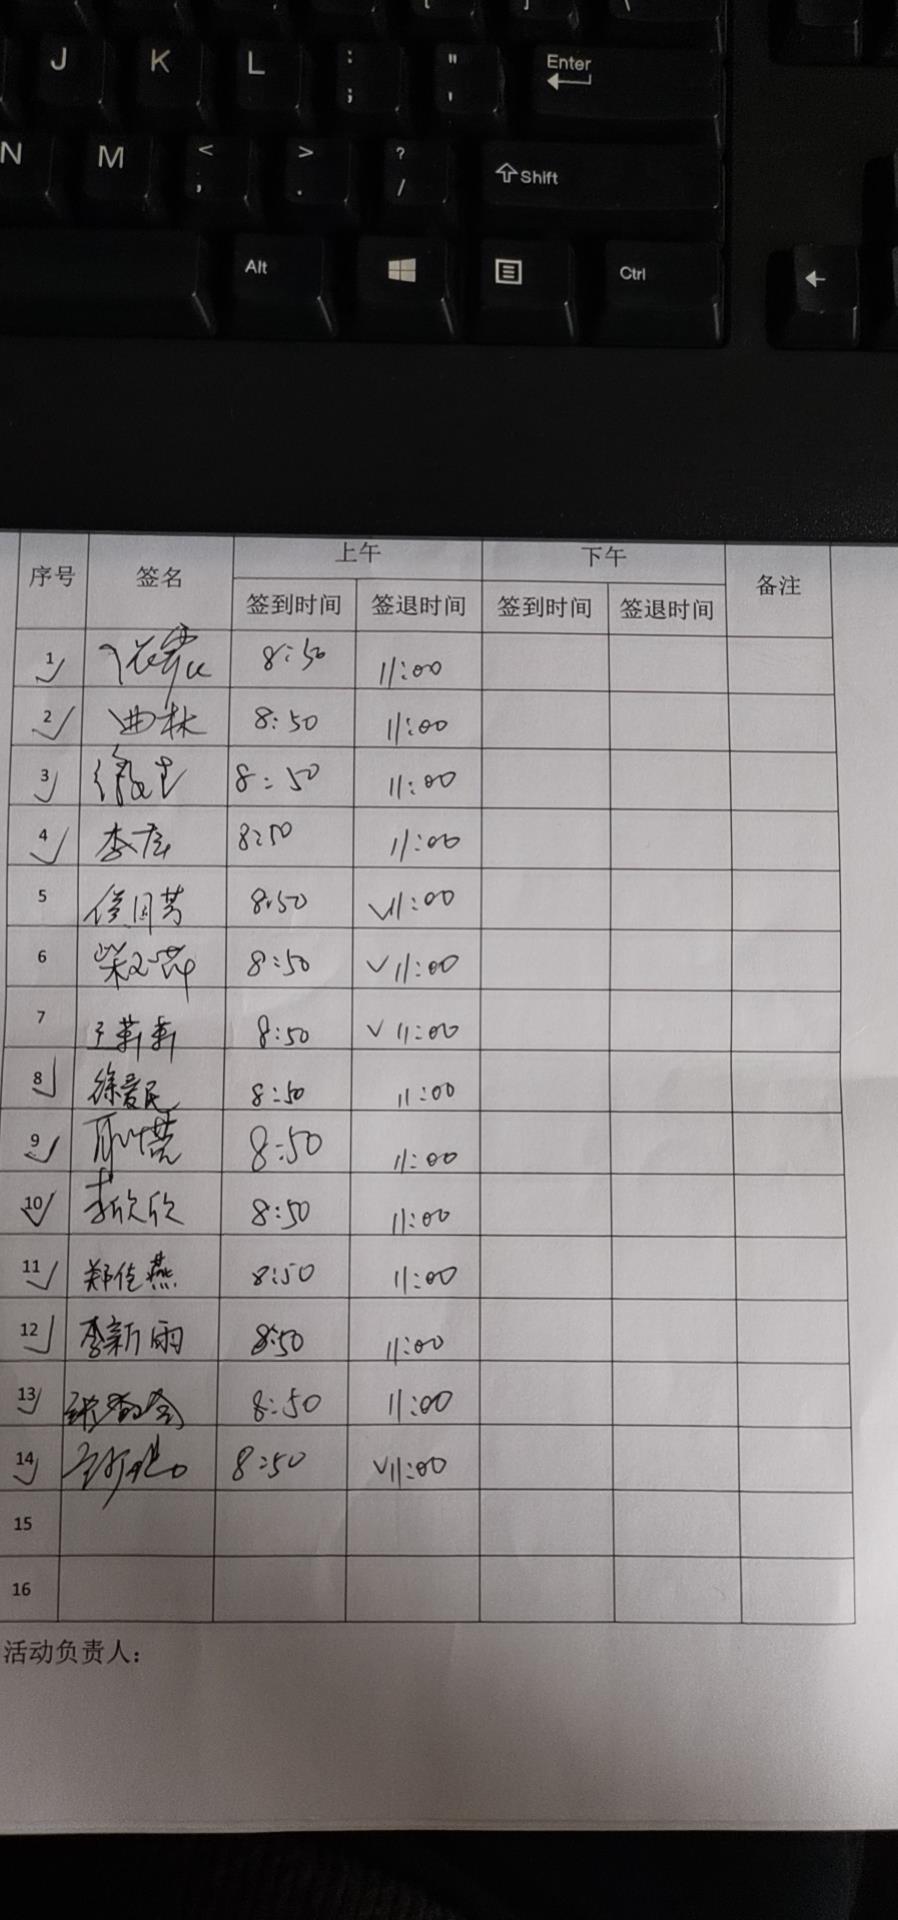 J K L : ; " ' Enter
N M < , > . ? / Shift
Alt Ctrl
序号 签名 上午 下午 备注
签到时间 签退时间 签到时间 签退时间
1 8:50 11:00
2 曲林 8:50 11:00
3 8:50 11:00
4 李彦 8:50 11:00
5 8:50 11:00
6 8:50 11:00
7 王莉莉 8:50 11:00
8 徐爱民 8:50 11:00
9 8:50 11:00
10 李欣欣 8:50 11:00
11 郑佳燕 8:50 11:00
12 李新雨 8:50 11:00
13 8:50 11:00
14 8:50 11:00
15
16
活动负责人：